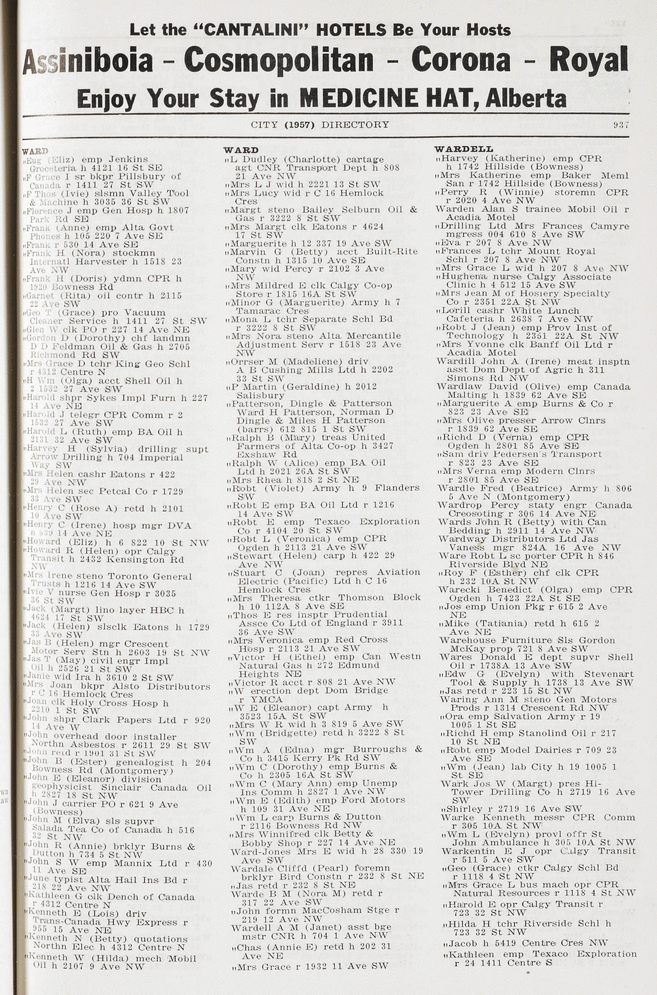 Let the "CANTALINI" HOTELS Be Your Hosts
Assiniboia - Cosmopolitan - Corona - Royal
Enjoy Your Stay in MEDICINE HAT, Alberta
CITY (1957) DIRECTORY 937
WARD
„Eug (Eliz) emp Jenkins
Groceteria h 4121 16 St SE
„F Grace I sr bkpr Pillsbury of
Canada r 1411 27 St SW
„F Thos (Ivie) slsmn Valley Tool
& Machine h 3035 36 St SW
„Florence J emp Gen Hosp h 1807
Park Rd SE
„Frank (Anne) emp Alta Govt
Phones h 105 220 7 Ave SE
„Frank r 530 14 Ave SE
„Frank H (Nora) stockmn
Internatl Harvester h 1518 23
Ave NW
„Frank H (Doris) ydmn CPR h
1920 Bowness Rd
„Garnet (Rita) oil contr h 2115
22 Ave SW
„Geo T (Grace) pro Vacuum
Cleaner Service h 1411 27 St SW
„Glen W clk PO r 227 14 Ave NE
„Gordon D (Dorothy) chf landmn
D D Feldman Oil & Gas h 2705
Richmond Rd SW
„Mrs Grace D tchr King Geo Schl
r 4312 Centre N
„H Wm (Olga) acct Shell Oil h
2 1532 27 Ave SW
„Harold shpr Sykes Impl Furn h 227
14 Ave NE
„Harold J telegr CPR Comm r 2
1532 27 Ave SW
„Harold L (Ruth) emp BA Oil h
2131 32 Ave SW
„Harvey H (Sylvia) drilling supt
Arrow Drilling h 704 Imperial
Way SW
„Mrs Helen cashr Eatons r 422
29 Ave NW
„Mrs Helen sec Petcal Co r 1729
33 Ave SW
„Henry C (Rose A) retd h 2101
10 Ave SW
„Henry C (Irene) hosp mgr DVA
h 959 14 Ave NE
„Howard (Eliz) h 6 822 10 St NW
„Howard R (Helen) opr Calgy
Transit h 2432 Kensington Rd
NW
„Mrs Irene steno Toronto General
Trusts h 1216 14 Ave SW
„Ivie V nurse Gen Hosp r 3035
36 St SW
„Jack (Margt) lino layer HBC h
4624 17 St SW
„Jack (Helen) slsclk Eatons h 1729
33 Ave SW
„Jas B (Helen) mgr Crescent
Motor Serv Stn h 2603 19 St NW
„Jas T (May) civil engr Impl
Oil h 2526 21 St SW
„Janie wid Ira h 3610 2 St SW
„Mrs Joan bkpr Alsto Distributors
r C 16 Hemlock Cres
„Joan clk Holy Cross Hosp h
2210 1 St SW
„John shpr Clark Papers Ltd r 920
14 Ave W
„John overhead door installer
Northn Asbestos r 2611 29 St SW
„John retd r 1901 31 St SW
„John B (Ester) genealogist h 204
Bowness Rd (Montgomery)
„John E (Eleanor) division
geophysicist Sinclair Canada Oil
h 2827 18 St NW
„John J carrier PO r 621 9 Ave
(Bowness)
„John M (Elva) sls supvr
Salada Tea Co of Canada h 516
32 St NW
„John R (Annie) brklyr Burns &
Dutton h 734 5 St NW
„John S W emp Mannix Ltd r 430
11 Ave SE
„June typist Alta Hail Ins Bd r
218 22 Ave NW
„Kathleen G clk Dench of Canada
r 4312 Centre N
„Kenneth E (Lois) driv
Trans-Canada Hwy Express r
955 15 Ave NE
„Kenneth N (Betty) quotations
Northn Elec h 4312 Centre N
„Kenneth W (Hilda) mech Mobil
Oil h 2107 9 Ave NW
WARD
„L Dudley (Charlotte) cartage
agt CNR Transport Dept h 808
21 Ave NW
„Mrs L J wid h 2221 13 St SW
„Mrs Lucy wid r C 16 Hemlock
Cres
„Margt steno Bailey Selburn Oil &
Gas r 3222 8 St SW
„Mrs Margt clk Eatons r 4624
17 St SW
„Marguerite h 12 337 19 Ave SW
„Marvin G (Betty) acct Built-Rite
Constn h 1315 10 Ave SE
„Mary wid Percy r 2102 3 Ave
NW
„Mrs Mildred E clk Calgy Co-op
Store r 1815 16A St SW
„Minor G (Marguerite) Army h 7
Tamarac Cres
„Mona L tchr Separate Schl Bd
r 3222 8 St SW
„Mrs Nora steno Alta Mercantile
Adjustment Serv r 1518 23 Ave
NW
„Orrser M (Madeliene) driv
A B Cushing Mills Ltd h 2202
33 St SW
„P Martin (Geraldine) h 2012
Salisbury
„Patterson, Dingle & Patterson
Ward H Patterson, Norman D
Dingle & Miles H Patterson
(barrs) 612 815 1 St SW
„Ralph B (Mary) treas United
Farmers of Alta Co-op h 3427
Exshaw Rd
„Ralph W (Alice) emp BA Oil
Ltd h 2021 26A St SW
„Mrs Rhea h 818 2 St NE
„Robt (Violet) Army h 9 Flanders
SW
„Robt E emp BA Oil Ltd r 1216
14 Ave SW
„Robt E emp Texaco Exploration
Co r 4104 20 St SW
„Robt L (Veronica) emp CPR
Ogden h 2113 21 Ave SW
„Stewart (Helen) carp h 422 29
Ave NW
„Stuart C (Joan) repres Aviation
Electric (Pacific) Ltd h C 16
Hemlock Cres
„Mrs Theresa cktr Thomson Block
h 10 112A 8 Ave SE
„Thos E res insptr Prudential
Assce Co Ltd of England r 3911
36 Ave SW
„Mrs Veronica emp Red Cross
Hosp r 2113 21 Ave SW
„Victor H (Ethel) emp Can Westn
Natural Gas h 272 Edmund
Heights NE
„Victor R acct r 808 21 Ave NW
„W erection dept Dom Bridge
r YMCA
„W E (Eleanor) capt Army h
3523 15A St SW
„Mrs W R wid h 3 819 5 Ave SW
„Wm (Bridgette) retd h 3222 8 St
SW
„Wm A (Edna) mgr Burroughs &
Co h 3415 Kerry Pk Rd SW
„Wm C (Dorothy) emp Burns &
Co h 2305 16A St SW
„Wm C (Mary Ann) emp Unemp
Ins Comm h 2827 1 Ave NW
„Wm E (Edith) emp Ford Motors
h 109 31 Ave NE
„Wm L carp Burns & Dutton
r 2116 Bowness Rd NW
„Mrs Winnifred clk Betty &
Bobby Shop r 227 14 Ave NE
Ward-Jones Mrs E wid h 28 330 19
Ave SW
Wardale Cliffd (Pearl) foremn
brklyr Bird Constn r 232 8 St NE
„Jas retd r 232 8 St NE
Warde B M (Nora M) retd r
317 22 Ave SW
„John formn MacCosham Stge r
219 12 Ave NW
Wardell A M (Janet) asst bge
mstr CNR h 704 1 Ave NW
„Chas (Annie E) retd h 202 31
Ave NE
„Mrs Grace r 1932 11 Ave SW
WARDELL
„Harvey (Katherine) emp CPR
h 1742 Hillside (Bowness)
„Mrs Katherine emp Baker Meml
San r 1742 Hillside (Bowness)
„Perry R (Winnie) storemn CPR
r 2020 4 Ave NW
Warden Alan S trainee Mobil Oil r
Acadia Motel
„Drilling Ltd Mrs Frances Camyre
mgress 004 610 8 Ave SW
„Eva r 207 8 Ave NW
„Frances L tchr Mount Royal
Schl r 207 8 Ave NW
„Mrs Grace L wid h 207 8 Ave NW
„Hughena nurse Calgy Associate
Clinic h 4 512 15 Ave SW
„Mrs Jean M of Hosiery Specialty
Co r 2351 22A St NW
„Lorill cashr White Lunch
Cafeteria h 2638 7 Ave NW
„Robt J (Jean) emp Prov Inst of
Technology h 2351 22A St NW
„Mrs Yvonne clk Banff Oil Ltd r
Acadia Motel
Wardill John A (Irene) meat insptn
asst Dom Dept of Agric h 311
Simons Rd NW
Wardlaw David (Olive) emp Canada
Malting h 1839 62 Ave SE
„Marguerite A emp Burns & Co r
823 23 Ave SE
„Mrs Olive presser Arrow Clnrs
r 1839 62 Ave SE
„Richd D (Verna) emp CPR
Ogden h 2801 85 Ave SE
„Sam driv Pedersen's Transport
r 823 23 Ave SE
„Mrs Verna emp Modern Clnrs
r 2801 85 Ave SE
Wardle Fred (Beatrice) Army h 806
5 Ave N (Montgomery)
Wardrop Percy staty engr Canada
Creosoting r 306 14 Ave NE
Wards John R (Betty) with Can
Bedding h 2911 14 Ave NW
Wardway Distributors Ltd Jas
Vaness mgr 824A 16 Ave NW
Ware Robt L sc porter CPR h 846
Riverside Blvd NE
„Roy F (Esther) chf clk CPR
h 232 10A St NW
Warecki Benedict (Olga) emp CPR
Ogden h 7423 22A St SE
„Jos emp Union Pkg r 615 2 Ave
NE
„Mike (Tatiania) retd h 615 2
Ave NE
Warehouse Furniture Sls Gordon
McKay prop 721 8 Ave SW
Wares Donald E dept supvr Shell
Oil r 1738A 13 Ave SW
„Edw G (Evelyn) with Stevenart
Tool & Supply h 1738 13 Ave SW
„Jas retd r 223 15 St NW
Waring Ann M steno Gen Motors
Prods r 1314 Crescent Rd NW
„Ora emp Salvation Army r 19
1005 1 St SE
„Richd H emp Stanolind Oil r 217
10 St NE
„Robt emp Model Dairies r 709 23
Ave SE
„Wm (Jean) lab City h 19 1005 1
St SE
Wark Jos W (Margt) pres Hi-
Tower Drilling Co h 2719 16 Ave
SW
„Shirley r 2719 16 Ave SW
Warke Kenneth messr CPR Comm
r 305 10A St NW
„Wm L (Evelyn) provl offr St
John Ambulance h 305 10A St NW
Warkentin E J opr Calgy Transit
r 511 5 Ave SW
„Geo (Grace) cktr Calgy Schl Bd
r 1118 4 St NW
„Mrs Grace L bus mach opr CPR
Natural Resources r 1118 4 St NW
„Harold E opr Calgy Transit r
723 32 St NW
„Hilda H tchr Riverside Schl h
723 32 St NW
„Jacob h 5419 Centre Cres NW
„Kathleen emp Texaco Exploration
r 24 1411 Centre S